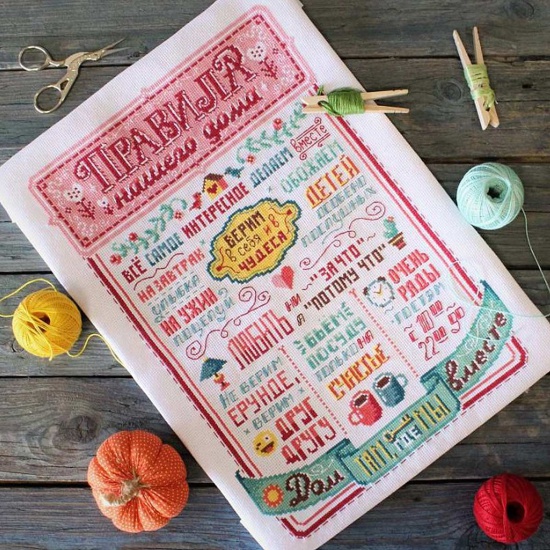 ПРАВИЛА
нашего дома
ВСЁ САМОЕ ИНТЕРЕСНОЕ ДЕЛАЕМ
вместе
НА ЗАВТРАК
УЛЫБКА
НА УЖИН
ПОЦЕЛУЙ
ВЕРИМ
В СЕБЯ И В
ЧУДЕСА
ОБОЖАЕМ
ДЕТЕЙ
ОСОБЕННО
ПОСЛУШНЫХ
ЛЮБИТЬ
НИ "ЗА ЧТО"
А "ПОТОМУ ЧТО"
НЕ ВЕРИМ
ЕРУНДЕ,
ВЕРИМ
ДРУГ
ДРУГУ
БЬЁМ
ПОСУДУ
ТОЛЬКО НА
СЧАСТЬЕ
ОЧЕНЬ
РАДЫ
ГОСТЯМ
с 10:00
до 22:00
Дом ТАМ, ГДЕ МЫ вместе